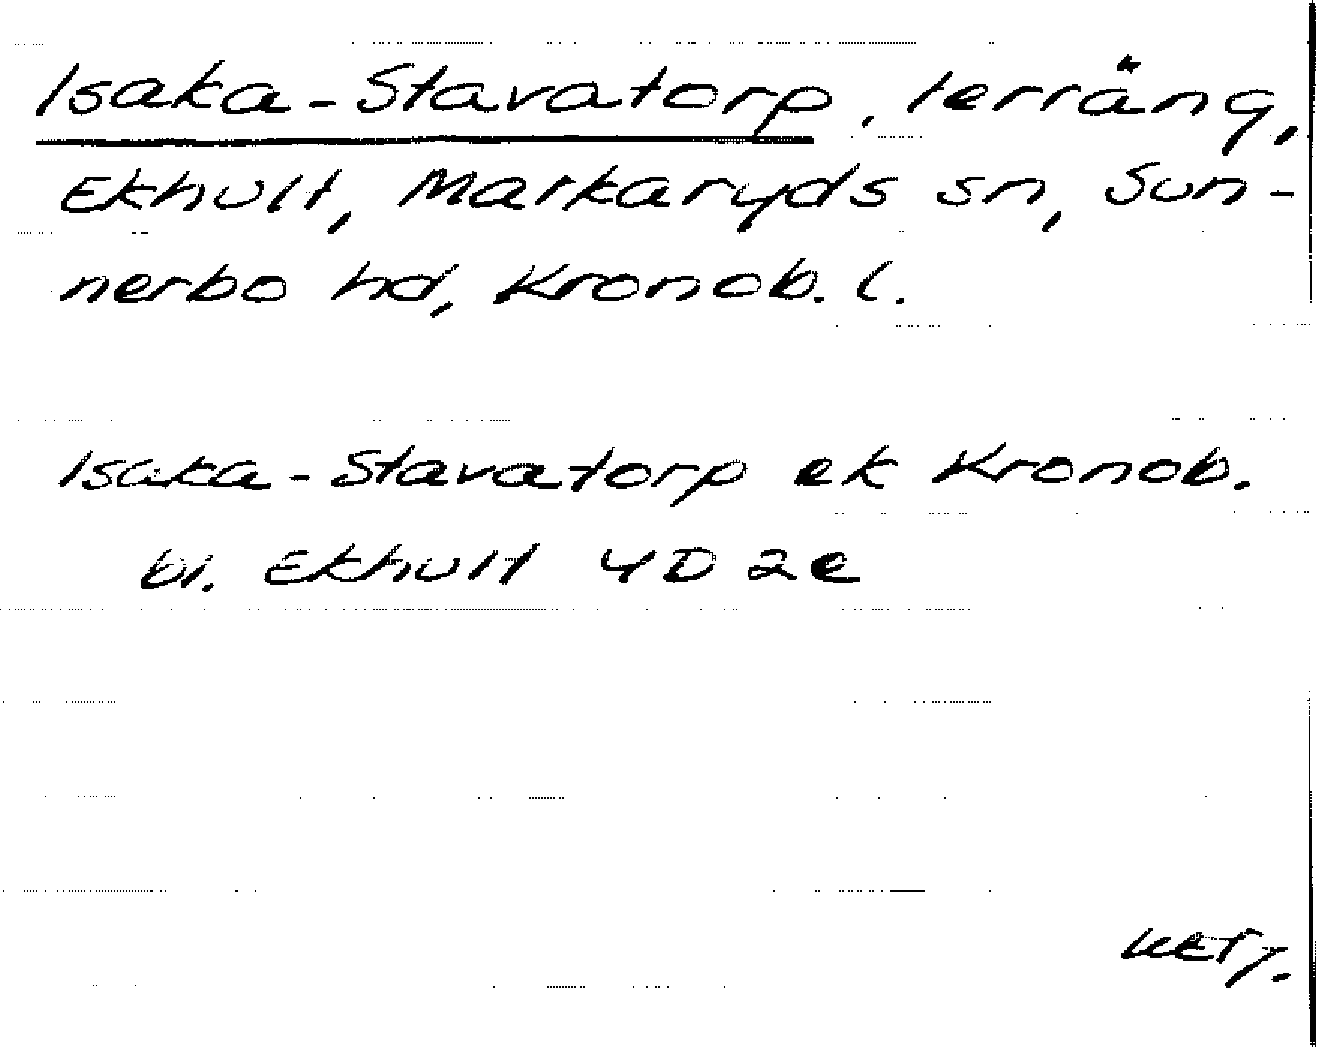 Isaka-Stavatorp, terräng,
Ekhult, Markaryds sn, Sun-
nerbo hd, Kronob. l.
Isaka-Stavatorp ek Kronob.
bl. Ekhult 4D 2e